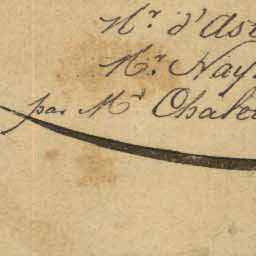 Mr. d'As
Mr. Hay
par Mr Chale